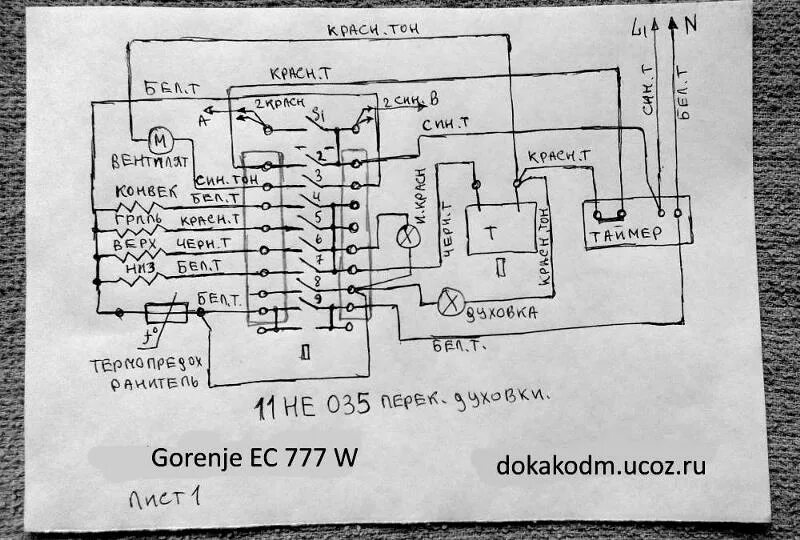 КРАСН. ТОН
L1 N
КРАСН.Т
БЕЛ.Т
А
2 КРАСН
S1
2 СИН. В
СИН.Т
СИН. Т
БЕЛ.Т
М
ВЕНТИЛЯТ
2
КРАСН.Т
СИН.ТОН
3
КОНВЕК
БЕЛ.Т
4
ГРИЛЬ
КРАСН.Т
5
И.КРАСН
ЧЕРН.Т
Т
КРАСН.ТОН
ТАЙМЕР
ВЕРХ
ЧЕРН.Т
6
НИЗ
БЕЛ.Т
7
П
8
БЕЛ.Т.
9
ДУХОВКА
t°
БЕЛ.Т.
ТЕРМОПРЕДОХ
РАНИТЕЛЬ
П
11 НЕ 035 ПЕРЕК. ДУХОВКИ.
Gorenje EC 777 W
dokakodm.ucoz.ru
ЛИСТ 1